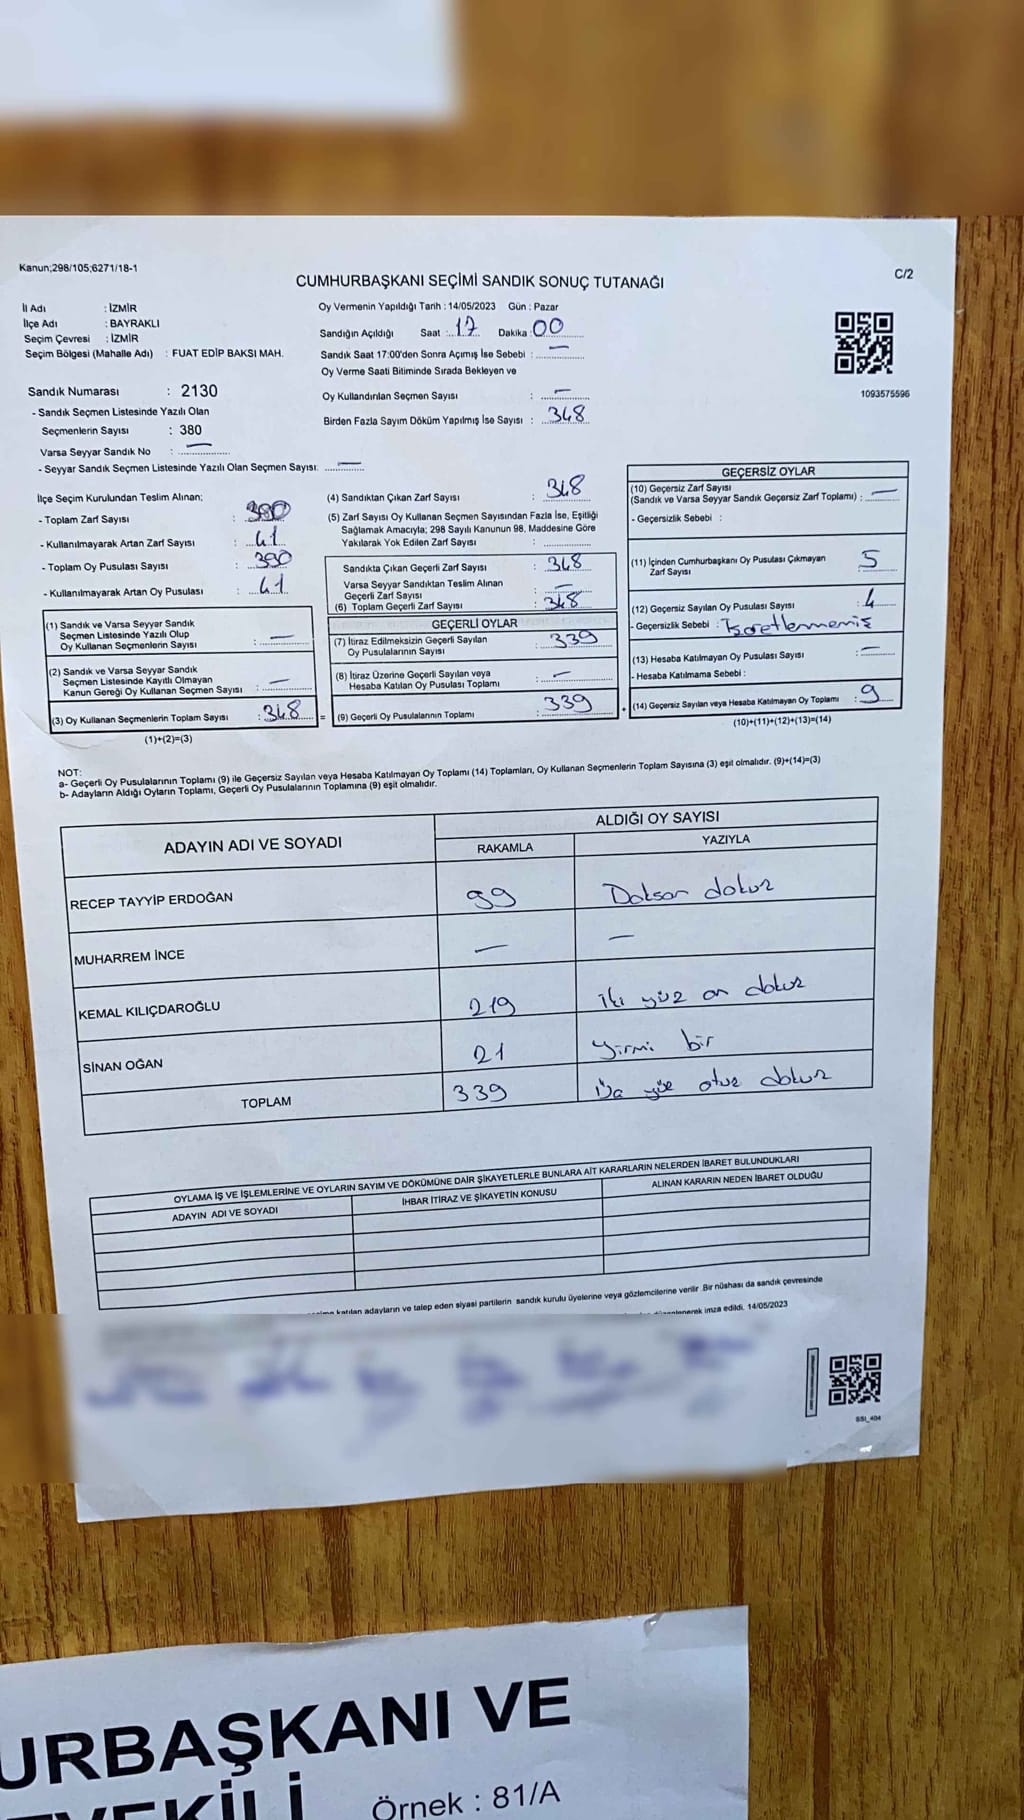 Kanun;298/105;6271/18-1
C/2
CUMHURBAŞKANI SEÇİMİ SANDIK SONUÇ TUTANAĞI
İl Adı : İZMİR
İlçe Adı : BAYRAKLI
Seçim Çevresi : İZMİR
Seçim Bölgesi (Mahalle Adı) : FUAT EDİP BAKSI MAH.
Oy Vermenin Yapıldığı Tarih : 14/05/2023 Gün : Pazar
Sandığın Açıldığı Saat : 17 Dakika : 00
Sandık Saat 17:00'den Sonra Açımış İse Sebebi : —
Oy Verme Saati Bitiminde Sırada Bekleyen ve
Oy Kullandırılan Seçmen Sayısı : —
Birden Fazla Sayım Döküm Yapılmış İse Sayısı : 348
1093575596
Sandık Numarası : 2130
- Sandık Seçmen Listesinde Yazılı Olan
Seçmenlerin Sayısı : 380
Varsa Seyyar Sandık No : —
- Seyyar Sandık Seçmen Listesinde Yazılı Olan Seçmen Sayısı: —
İlçe Seçim Kurulundan Teslim Alınan;
- Toplam Zarf Sayısı :
- Kullanılmayarak Artan Zarf Sayısı : 41
- Toplam Oy Pusulası Sayısı : 390
- Kullanılmayarak Artan Oy Pusulası : 41
(1) Sandık ve Varsa Seyyar Sandık
Seçmen Listesinde Yazılı Olup
Oy Kullanan Seçmenlerin Sayısı : —
(2) Sandık ve Varsa Seyyar Sandık
Seçmen Listesinde Kayıtlı Olmayan
Kanun Gereği Oy Kullanan Seçmen Sayısı : —
(3) Oy Kullanan Seçmenlerin Toplam Sayısı : 348
(1)+(2)=(3)
(4) Sandıktan Çıkan Zarf Sayısı : 348
(5) Zarf Sayısı Oy Kullanan Seçmen Sayısından Fazla İse, Eşitliği
Sağlamak Amacıyla; 298 Sayılı Kanunun 98. Maddesine Göre
Yakılarak Yok Edilen Zarf Sayısı :
Sandıkta Çıkan Geçerli Zarf Sayısı : 348
Varsa Seyyar Sandıktan Teslim Alınan
Geçerli Zarf Sayısı : —
(6) Toplam Geçerli Zarf Sayısı : 348
GEÇERLİ OYLAR
(7) İtiraz Edilmeksizin Geçerli Sayılan
Oy Pusulalarının Sayısı : 339
(8) İtiraz Üzerine Geçerli Sayılan veya
Hesaba Katılan Oy Pusulası Toplamı : —
= (9) Geçerli Oy Pusulalarının Toplamı : 339
GEÇERSİZ OYLAR
(10) Geçersiz Zarf Sayısı
(Sandık ve Varsa Seyyar Sandık Geçersiz Zarf Toplamı) : —
- Geçersizlik Sebebi :
(11) İçinden Cumhurbaşkanı Oy Pusulası Çıkmayan
Zarf Sayısı : 5
(12) Geçersiz Sayılan Oy Pusulası Sayısı : 4
- Geçersizlik Sebebi : İşaretlenmemiş
(13) Hesaba Katılmayan Oy Pusulası Sayısı : —
- Hesaba Katılmama Sebebi :
(14) Geçersiz Sayılan veya Hesaba Katılmayan Oy Toplamı : 9
(10)+(11)+(12)+(13)=(14)
NOT:
a- Geçerli Oy Pusulalarının Toplamı (9) ile Geçersiz Sayılan veya Hesaba Katılmayan Oy Toplamı (14) Toplamları, Oy Kullanan Seçmenlerin Toplam Sayısına (3) eşit olmalıdır. (9)+(14)=(3)
b- Adayların Aldığı Oyların Toplamı, Geçerli Oy Pusulalarının Toplamına (9) eşit olmalıdır.
ADAYIN ADI VE SOYADI ALDIĞI OY SAYISI
RAKAMLA YAZIYLA
RECEP TAYYİP ERDOĞAN 99 Doksan dokuz
MUHARREM İNCE — —
KEMAL KILIÇDAROĞLU 219 iki yüz on dokuz
SİNAN OĞAN 21 yirmi bir
TOPLAM 339 Üç yüz otuz dokuz
OYLAMA İŞ VE İŞLEMLERİNE VE OYLARIN SAYIM VE DÖKÜMÜNE DAİR ŞİKAYETLERLE BUNLARA AİT KARARLARIN NELERDEN İBARET BULUNDUKLARI
ADAYIN ADI VE SOYADI İHBAR İTİRAZ VE ŞİKAYETİN KONUSU ALINAN KARARIN NEDEN İBARET OLDUĞU
katılan adayların ve talep eden siyasi partilerin sandık kurulu üyelerine veya gözlemcilerine verilir. Bir nüshası da sandık çevresinde
imza edildi. 14/05/2023
SSI_404
URBAŞKANI VE
EVEKİLİ
Örnek : 81/A